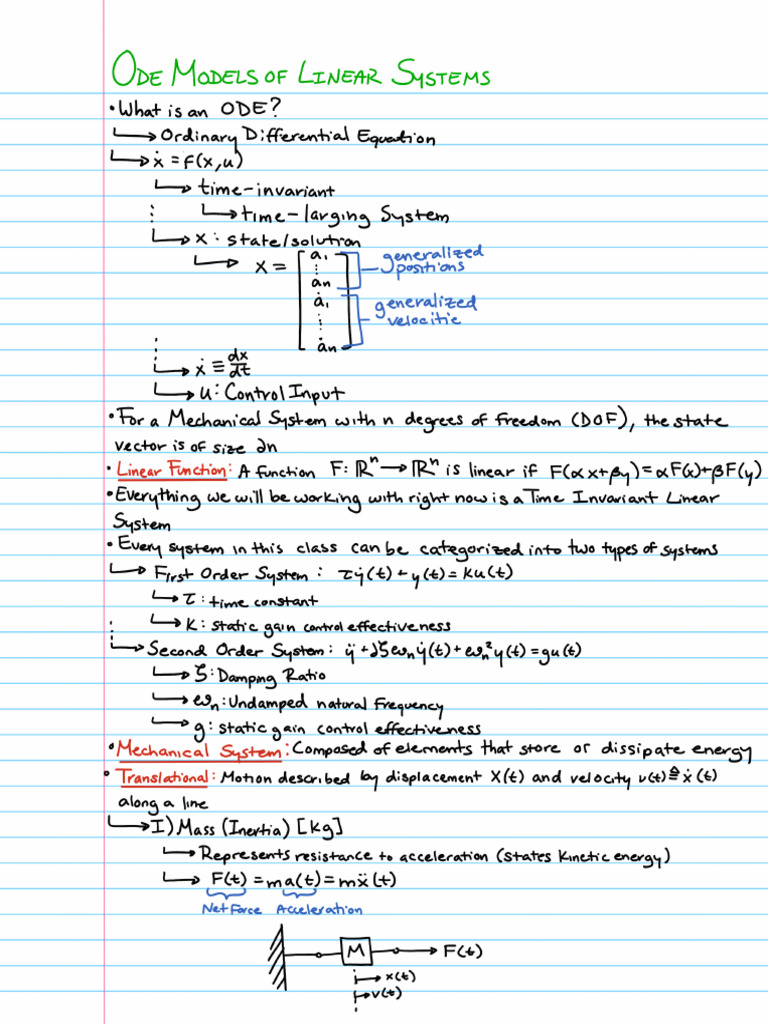 ODE MODELS OF LINEAR SYSTEMS
• What is an ODE?
↳ Ordinary Differential Equation
↳ ẋ = f(x,u)
↳ time-invariant
↳ time-larging System
↳ x: state/solution
↳ x = [a₁ ⋮ aₙ ȧ₁ ⋮ ȧₙ]
generalized positions
generalized velocitic
↳ ẋ ≡ dx/dt
↳ u: Control Input
• For a Mechanical System with n degrees of freedom (DOF), the state
vector is of size 2n
• Linear Function: A function F: ℝⁿ → ℝⁿ is linear if F(αx+βy)=αF(x)+βF(y)
• Everything we will be working with right now is a Time Invariant Linear
System
• Every system in this class can be categorized into two types of systems
↳ First Order System: τẏ(t) + y(t) = ku(t)
↳ τ: time constant
↳ K: static gain control effectiveness
↳ Second Order System: ÿ + 2ζωₙẏ(t) + ωₙ²y(t) = gu(t)
↳ ζ: Dampng Ratio
↳ ωₙ: Undamped natural Frequency
↳ g: static gain control effectiveness
• Mechanical System: Composed of elements that store or dissipate energy
• Translational: Motion described by displacement X(t) and velocity v(t) ≙ ẋ(t)
along a line
↳ I) Mass (Inertia) [kg]
↳ Represents resistance to acceleration (states Kinetic energy)
↳ F(t) = ma(t) = mẍ(t)
Net Force Acceleration
M → F(t)
→ x(t)
→ v(t)